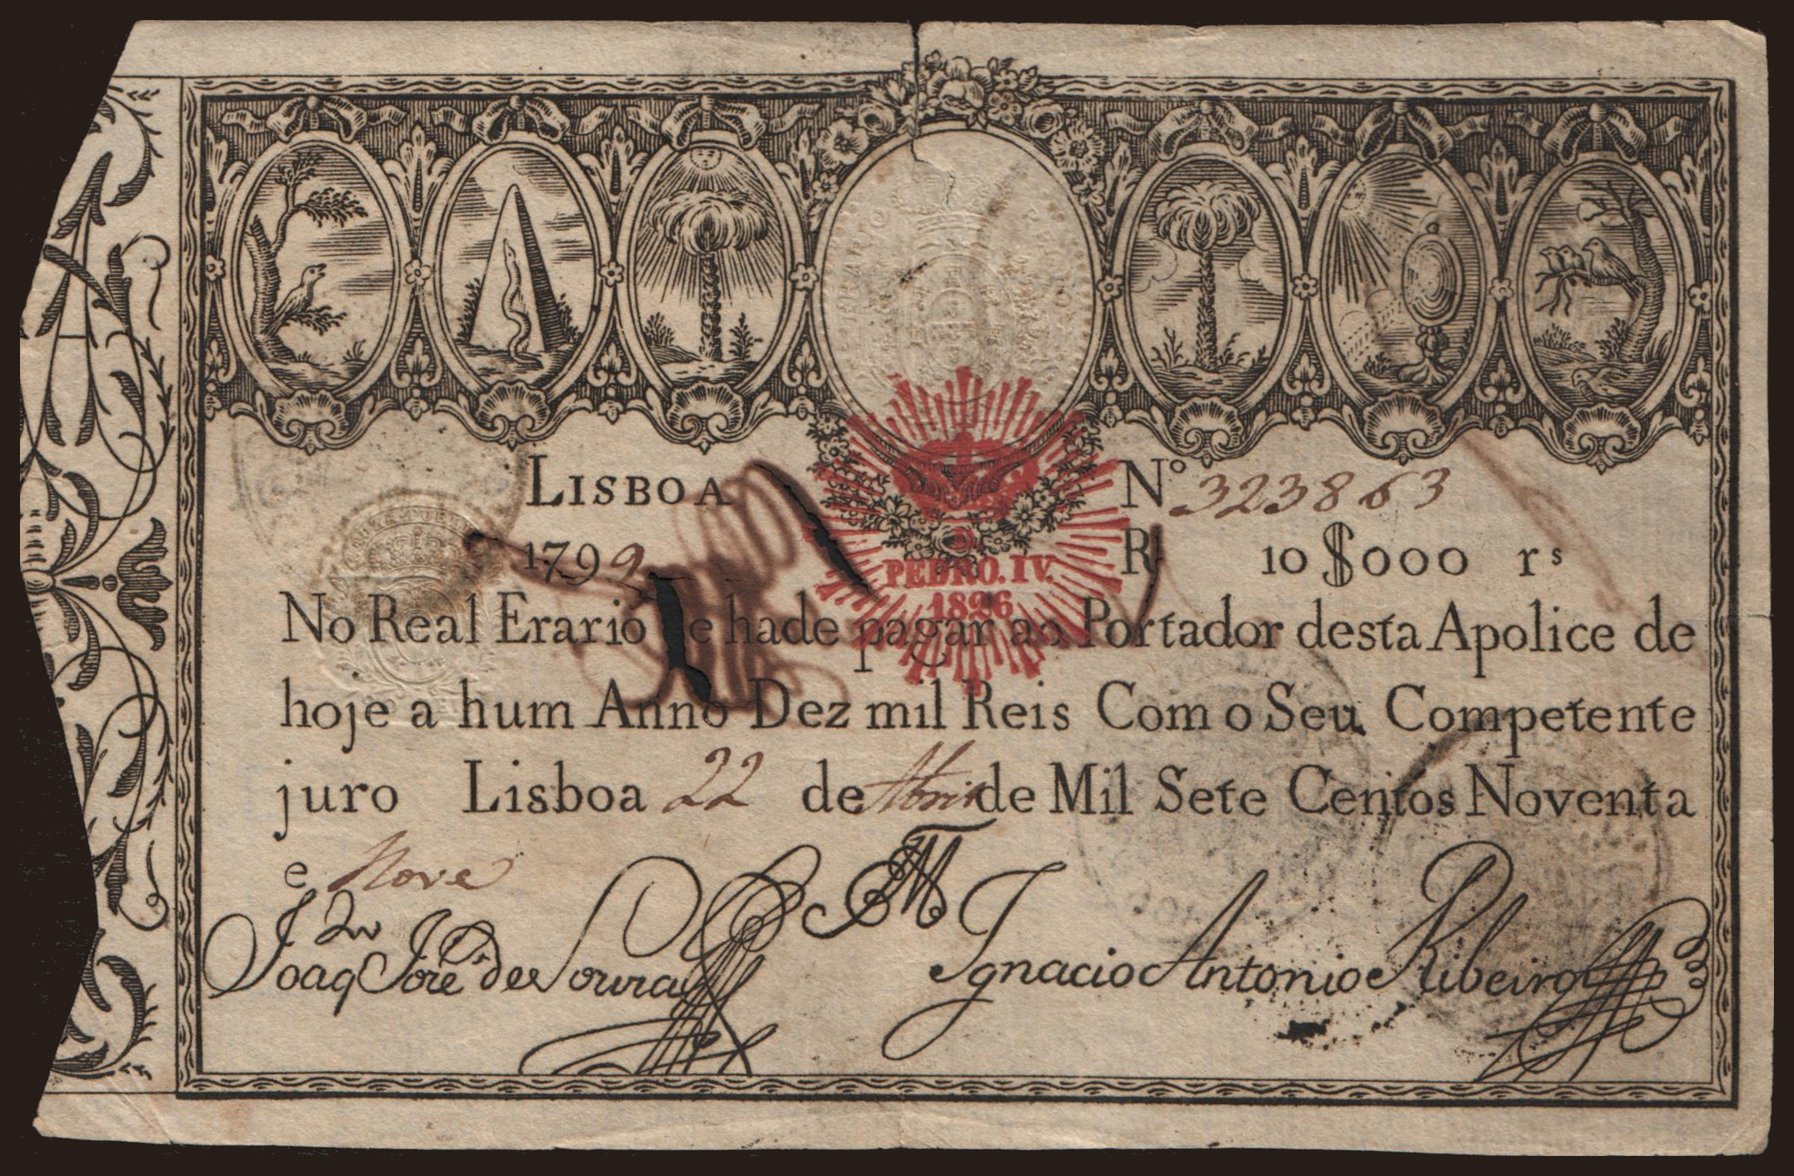 LISBOA
Nº 323863
1799
R 10$000 rs
PEDRO. IV.
1826
No Real Erario se hade pagar ao Portador desta Apolice de
hoje a hum Anno Dez mil Reis Com o Seu Competente
juro Lisboa 22 de Abril de Mil Sete Centos Noventa
e Nove
Joaqm Jose de Souza
Ignacio Antonio Ribeiro